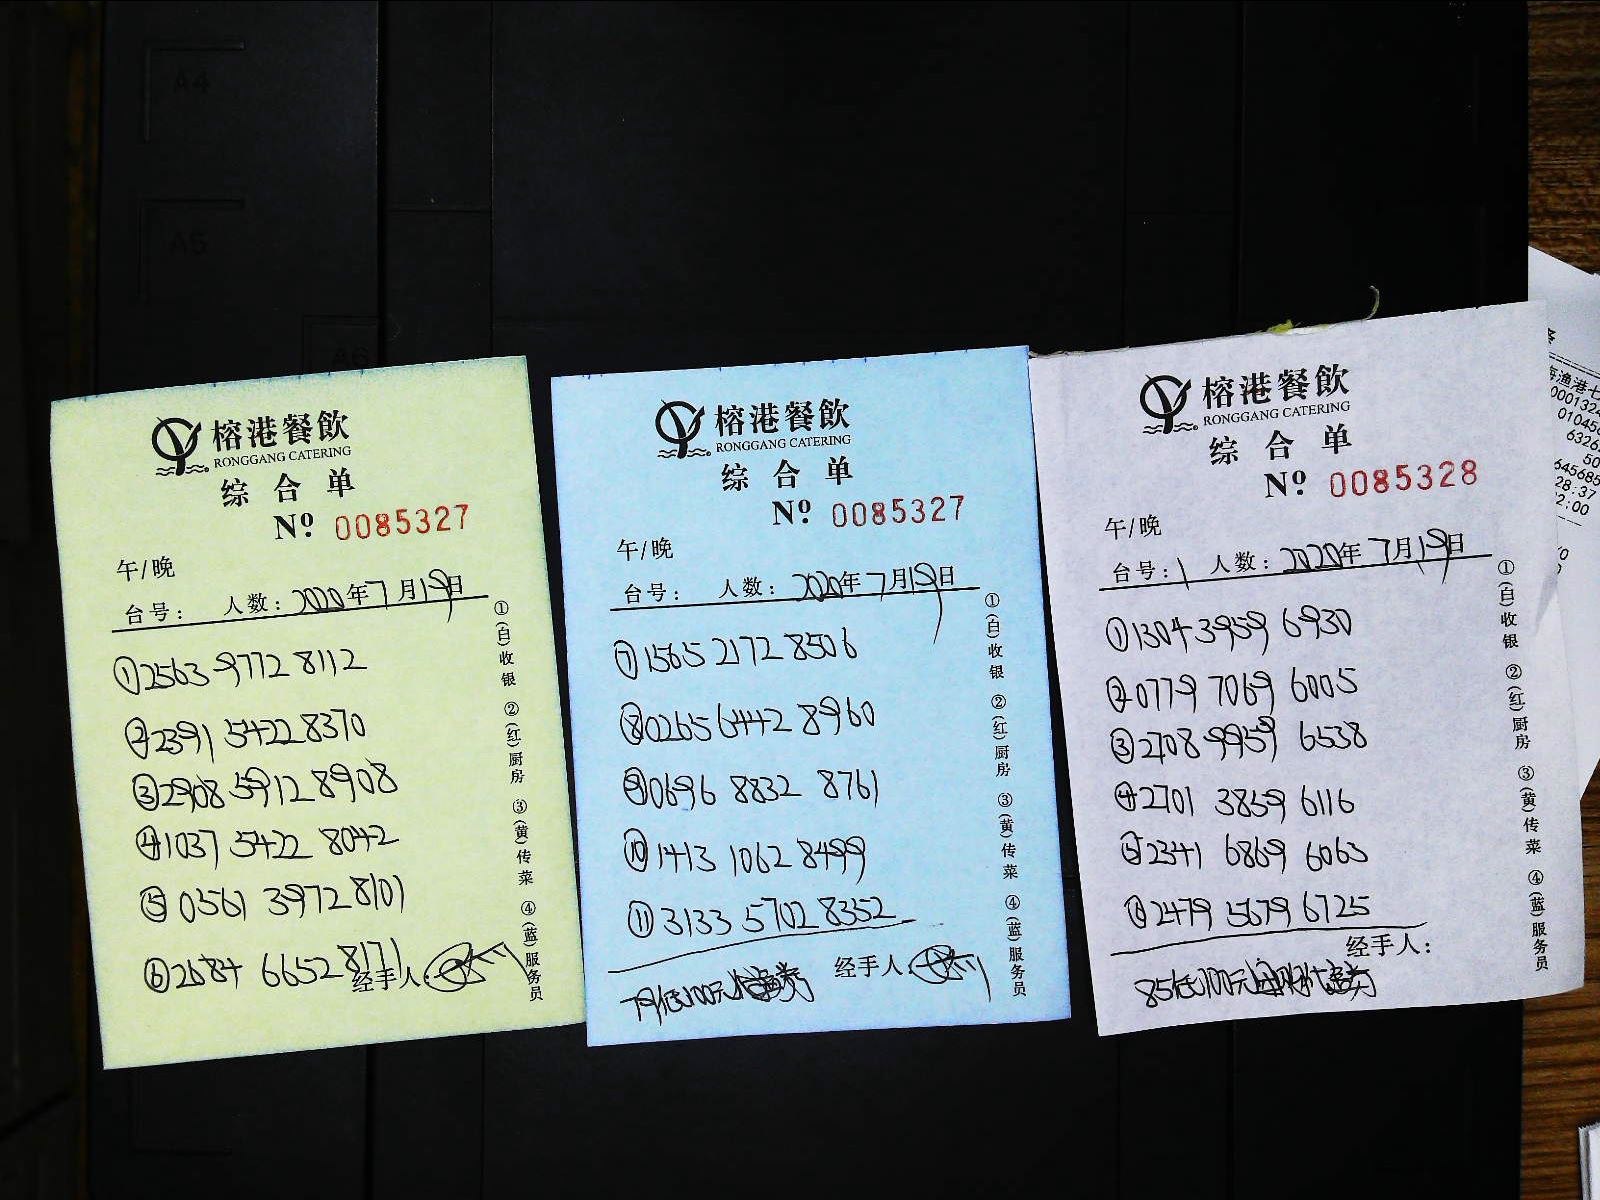 A4
A5
A6
榕港餐飲
RONGGANG CATERING
综合单
Nº 0085327
午/晚
台号: 人数: 2020年7月19日
①2563 9772 8112
②2391 5422 8370
③2908 5912 8908
④1037 5422 8042
⑤0561 3972 8101
⑥2684 6652 8171
经手人:
①(白)收银 ②(红)厨房 ③(黄)传菜 ④(蓝)服务员
榕港餐飲
RONGGANG CATERING
综合单
Nº 0085327
午/晚
台号: 人数: 2020年7月19日
⑦1565 2172 8506
⑧0265 6442 8960
⑨0696 8832 8761
⑩1413 1062 8499
⑪3133 5702 8352
经手人:
100元
①(白)收银 ②(红)厨房 ③(黄)传菜 ④(蓝)服务员
榕港餐飲
RONGGANG CATERING
综合单
Nº 0085328
午/晚
台号: 1 人数: 2020年7月19日
①1304 3959 6930
②0779 7069 6005
③2708 9959 6538
④2701 3859 6116
⑤2341 6869 6063
⑥2479 5679 6725
经手人:
85低100元
①(白)收银 ②(红)厨房 ③(黄)传菜 ④(蓝)服务员
渔港七
0001324
01045
6326
50
645685
28:37
2:00